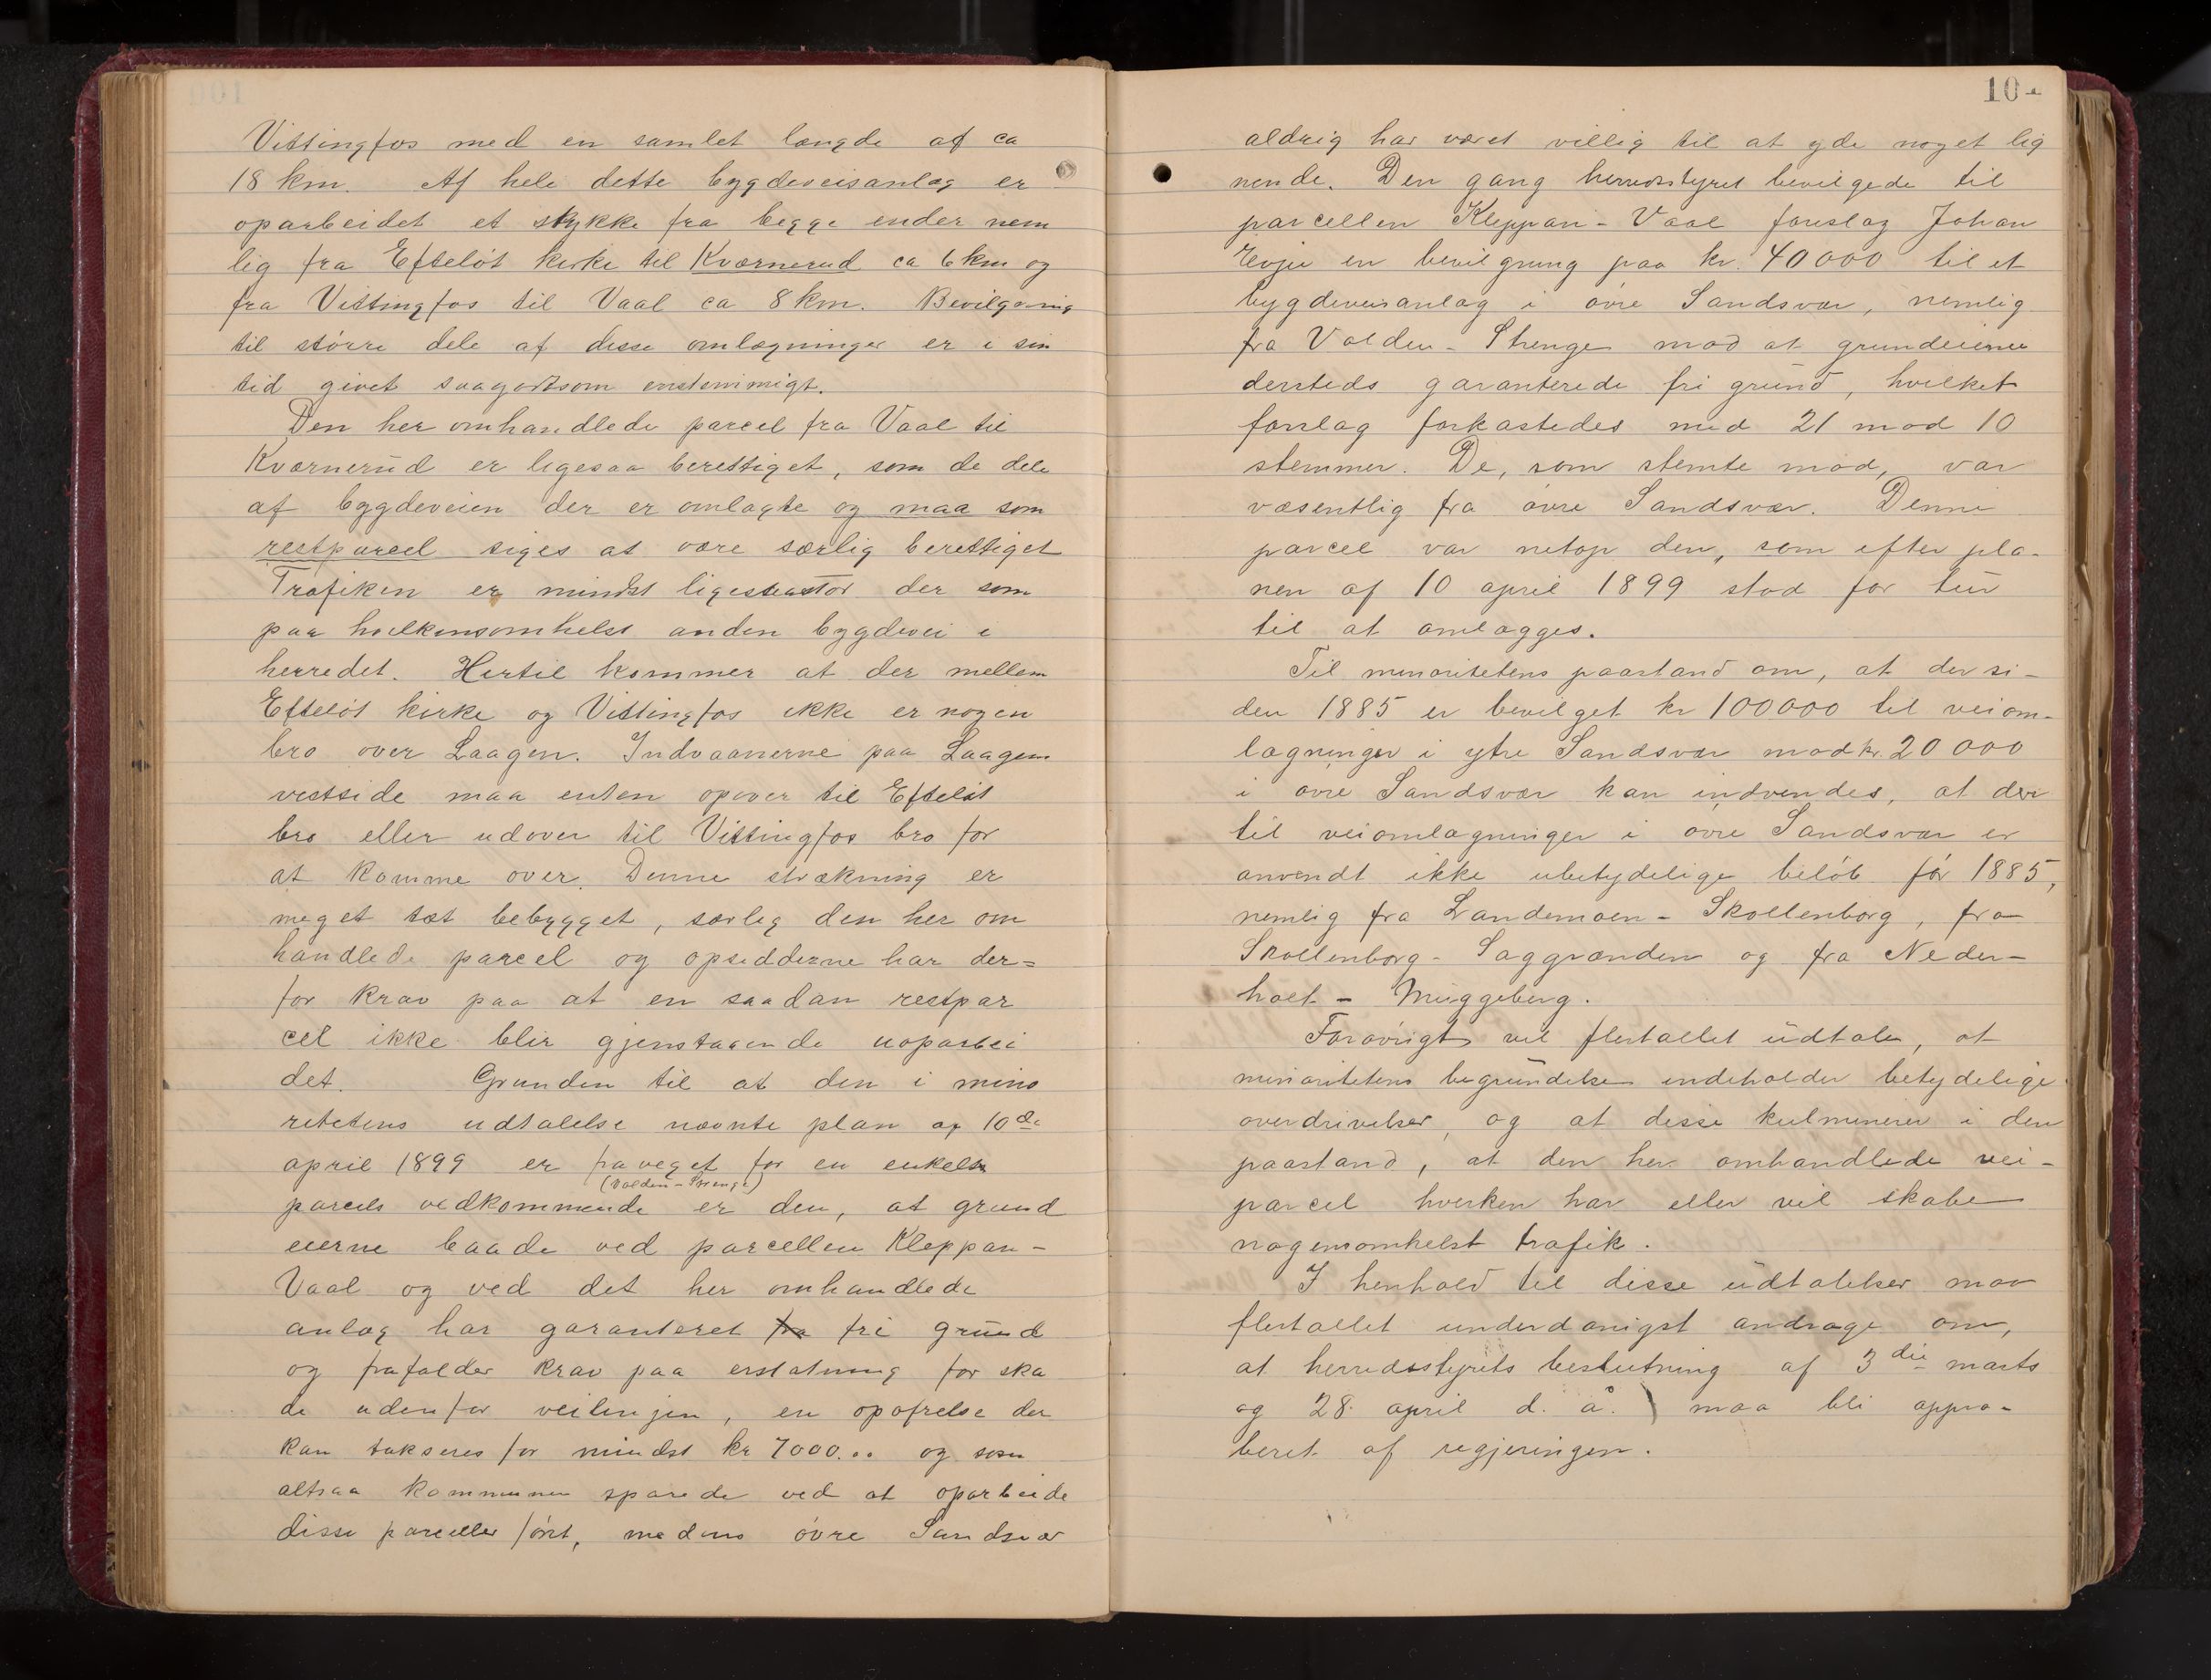 Vittingfos med en samlet længde af ca
18 km. Af hele dette bygdeveisanlæg er
oparbeidet et stykke fra begge ender nem
lig fra Efteløt kirke til Kværnerud ca 6 km og
fra Vittingfos til Vaal ca 8 km. Bevilgning
til større dele af disse omlægninger er i sin
tid givet saagodtsom enstemmigt.
Den her omhandlede parcel fra Vaal til
Kværnerud er ligesaa berettiget, som de dele
af bygdeveien der er omlagte og maa som
restparcel siges at være særlig berettiget
Trafiken er mindst ligesaastor der som
paa hvilkensomhelst anden bygdevei i
herredet. Hertil kommer at der mellem
Efteløt kirke og Vittingfos ikke er nogen
bro over Laagen. Indvaanerne paa Laagens
vestside maa enten opover til Efteløt
bro eller udover til Vittingfos bro for
at komme over. Denne strækning er
meget tæt bebygget, særlig den her om
handlede parcel og opsidderne har der=
for krav paa at en saadan restpar
cel ikke blir gjenstaaende uoparbei
det. Grunden til at den i mino
ritetens udtalelse nævnte plan af 10de
april 1899 er fraveget for en enkelt
(Volden - Strenge)
parcels vedkommende er den, at grund
eierne baade ved parcellen Kleppan-
Vaal og ved det her omhandlede
anlæg har garanteret fra fri grund
og frafalder krav paa erstatning for ska
de udenfor veilinjen, en opofrelse der
kan takseres for mindst kr 7000.. og som
altsaa kommunen sparede ved at oparbeide
disse parceller først, medens øvre Sandsvær
104
aldrig har været villig til at yde noget lig
nende. Den gang herredsstyret bevilgede til
parcellen Kleppan - Vaal foreslog Johan
Evju en bevilgning paa kr. 40000 til et
bygdeveisanlæg i øvre Sandsvær, nemlig
fra Volden - Strenge mod at grundeierne
dersteds garanterede fri grund, hvilket
forslag forkastedes med 21 mod 10
stemmer. De, som stemte mod, var
væsentlig fra øvre Sandsvær. Denne
parcel var netop den, som efter pla-
nen af 10 april 1899 stod for tur
til at omlægges.
Til minoritetens paastand om, at der si-
den 1885 er bevilget kr 100000 til veiom-
lægninger i ytre Sandsvær mod kr. 20 000
i øvre Sandsvær kan indvendes, at der
til veiomlægninger i øvre Sandsvær er
anvendt ikke ubetydelige beløb før 1885,
nemlig fra Landemoen - Skollenborg, fra
Skollenborg - Saggrænden og fra Neder-
holt - Muggeberg.
Forøvrigt vil flertallet udtale, at
minoritetens begrundelse indeholder betydelige
overdrivelser, og at disse kulminerer i den
paastand, at den her omhandlede vei-
parcel hverken har eller vil skabe
nogensomhelst trafik.
I henhold til disse udtalelser maa
flertallet underdanigst andrage om,
at herredsstyrets beslutning af 3die marts
og 28. april d. å. ) maa bli appro-
beret af regjeringen.